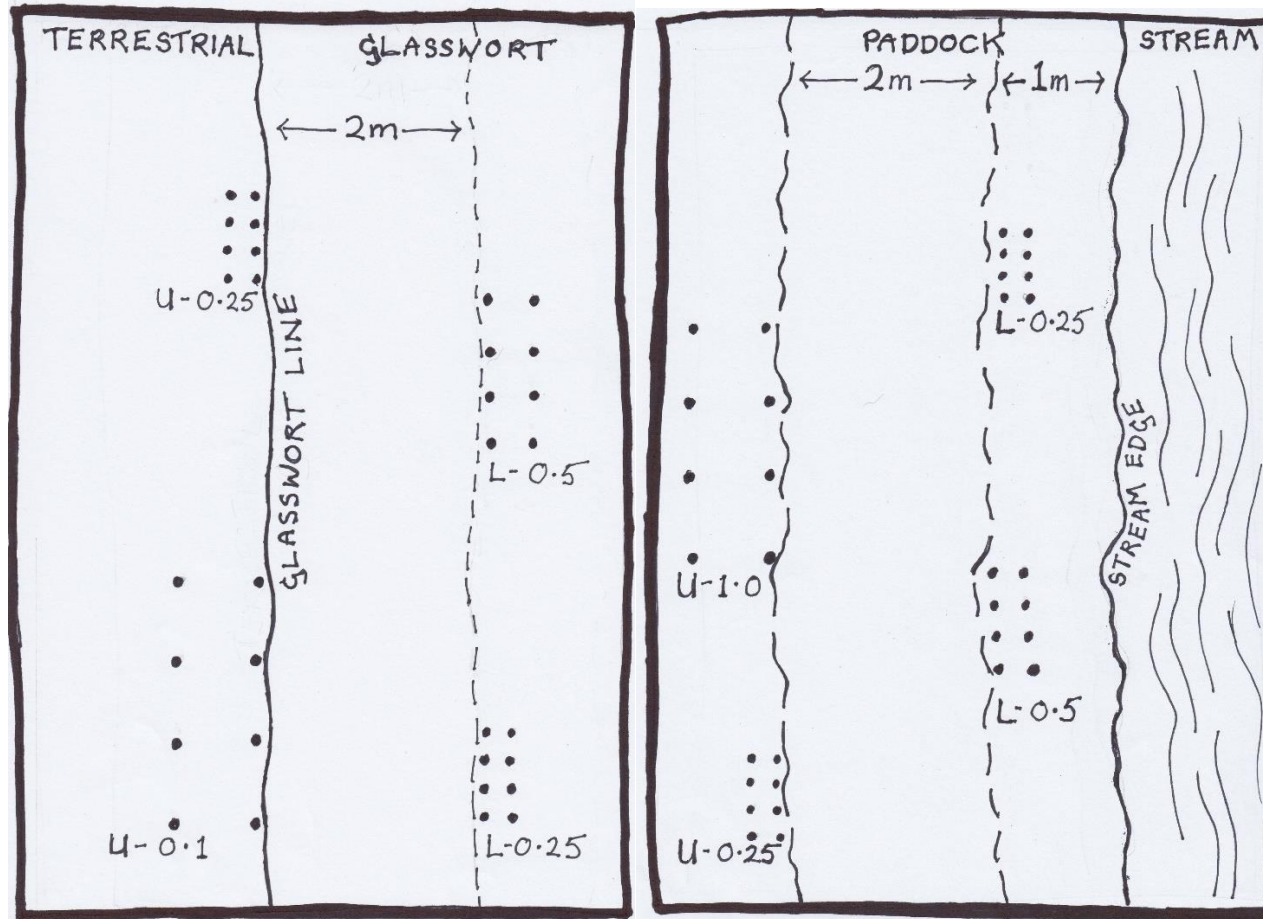 TERRESTRIAL GLASSWORT
2m
U-0.25
GLASSWORT LINE
L-0.5
U-0.1
L-0.25
PADDOCK STREAM
2m 1m
L-0.25
STREAM EDGE
U-1.0
L-0.5
U-0.25